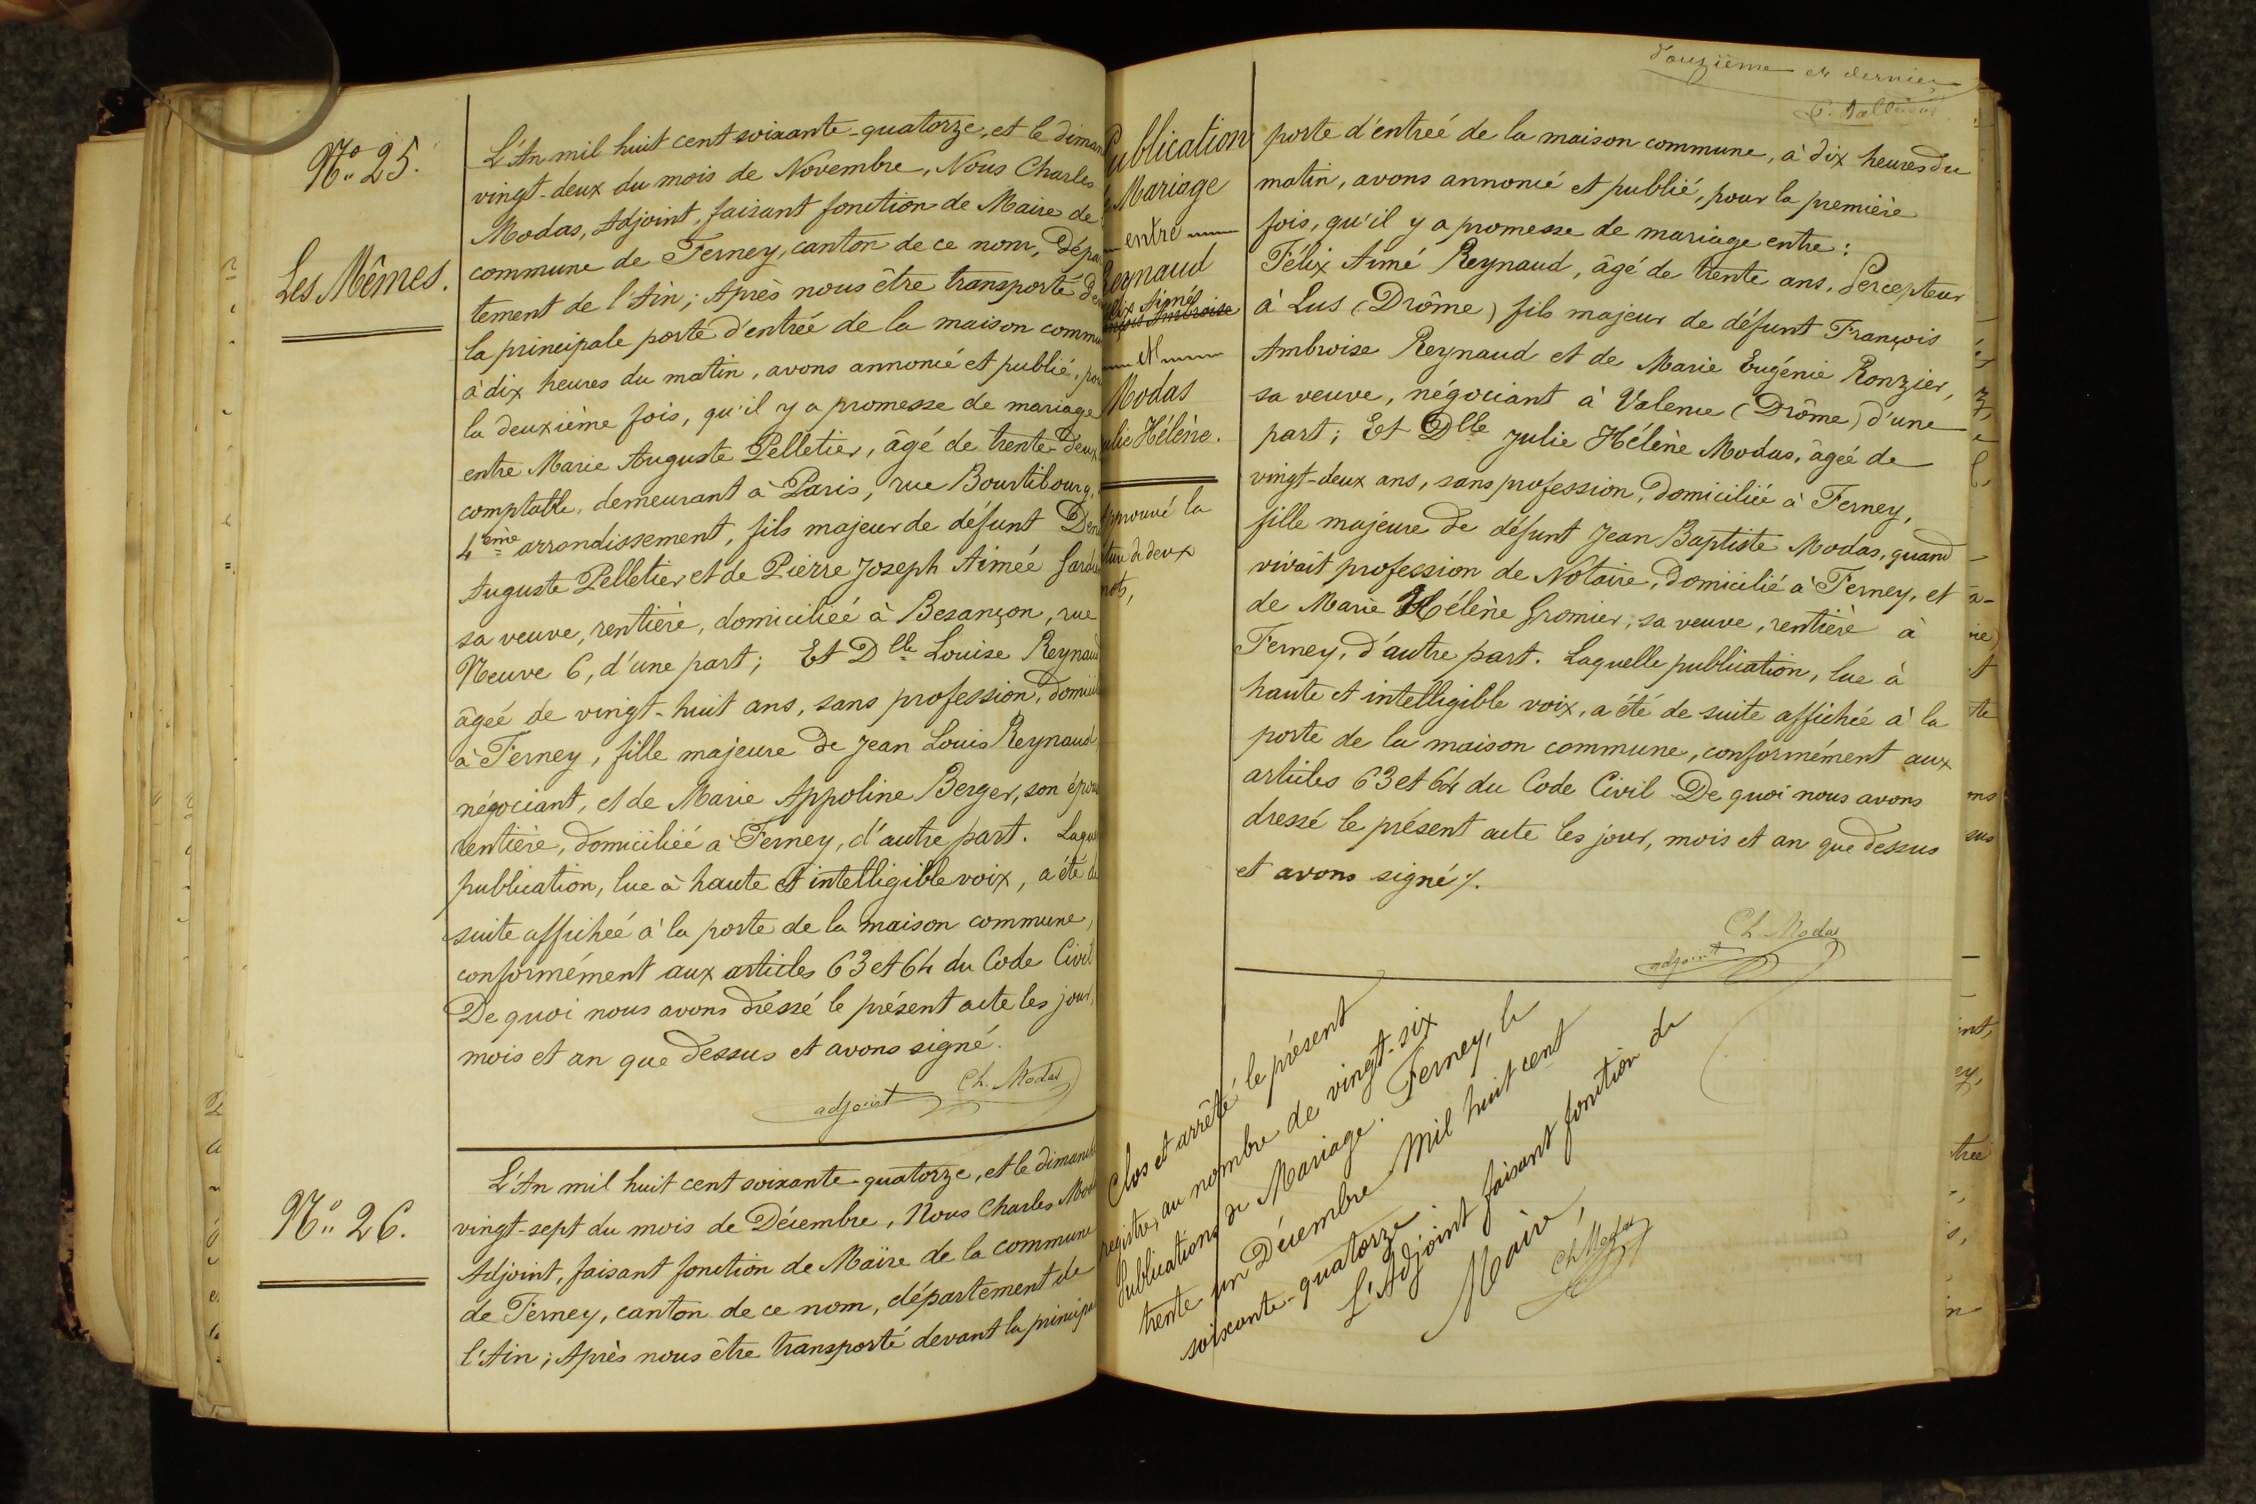 N° 25.
Les Mêmes.
L'An mil huit cent soixante-quatorze, et le diman
vingt-deux du mois de Novembre, Nous Charles
Modas, Adjoint, faisant fonction de Maire de
commune de Ferney, canton de ce nom, Dépar
tement de l'Ain; Après nous être transporté de
la principale porte d'entrée de la maison commu
à dix heures du matin, avons annoncé et publié, pou
la deuxième fois, qu'il y a promesse de mariage
entre Marie Auguste Pelletier, âgé de trente-deux
comptable, demeurant à Paris, rue Bourtibourg,
4ème arrondissement, fils majeur de défunt Den
Auguste Pelletier et de Pierre Joseph Aimée
sa veuve, rentière, domiciliée à Besançon, rue
Neuve 6, d'une part; Et Dlle Louise Reynaud
âgée de vingt-huit ans, sans profession, domicili
à Ferney, fille majeure de Jean Louis Reynaud
négociant, et de Marie Appoline Berger, son épou
rentière, domiciliée à Ferney, d'autre part. Laque
publication, lue à haute et intelligible voix, a été de
suite affichée à la porte de la maison commune,
conformément aux articles 63 et 64 du Code Civil
De quoi nous avons dressé le présent acte les jour,
mois et an que dessus et avons signé.
Ch. Modas
adjoint
N° 26.
L'An mil huit cent soixante-quatorze, et le dimanche
vingt-sept du mois de Décembre, Nous Charles Mod
Adjoint, faisant fonction de Maire de la commune
de Ferney, canton de ce nom, département de
l'Ain; Après nous être transporté devant la principa
douzième et dernier
Publication
Mariage
entre
Reynaud
Félix Aimé
Ambroise
et
Modas
Julie Hélène.
approuvé la
de deux
mots,
porte d'entreé de la maison commune, à dix heures du
matin, avons annoncé et publié, pour la première
fois, qu'il y a promesse de mariage entre:
Félix Aimé Reynaud, âgé de trente ans, Percepteur
à Lus (Drôme) fils majeur de défunt François
Ambroise Reynaud et de Marie Eugénie Ronzier,
sa veuve, négociant à Valence (Drôme) d'une
part; Et Dlle Julie Hélène Modas, âgeé de
vingt-deux ans, sans profession, domiciliée à Ferney,
fille majeure de défunt Jean Baptiste Modas, quand
vivait profession de Notaire, domicilié à Ferney, et
de Marie Hélène Gromier, sa veuve, rentière à
Ferney, d'autre part. Laquelle publication, lue à
haute et intelligible voix, a été de suite affichée à la
porte de la maison commune, conformément aux
articles 63 et 64 du Code Civil De quoi nous avons
dressé le présent acte les jour, mois et an que dessus
et avons signé /.
Ch. Modas
adjoint
Clos et arrêté le présent
registre, au nombre de vingt-six
Publications de Mariage. Ferney, le
trente-un Décembre Mil huit cent
soixante-quatorze.
L'Adjoint faisant fonction de
Maire,
Ch Modas